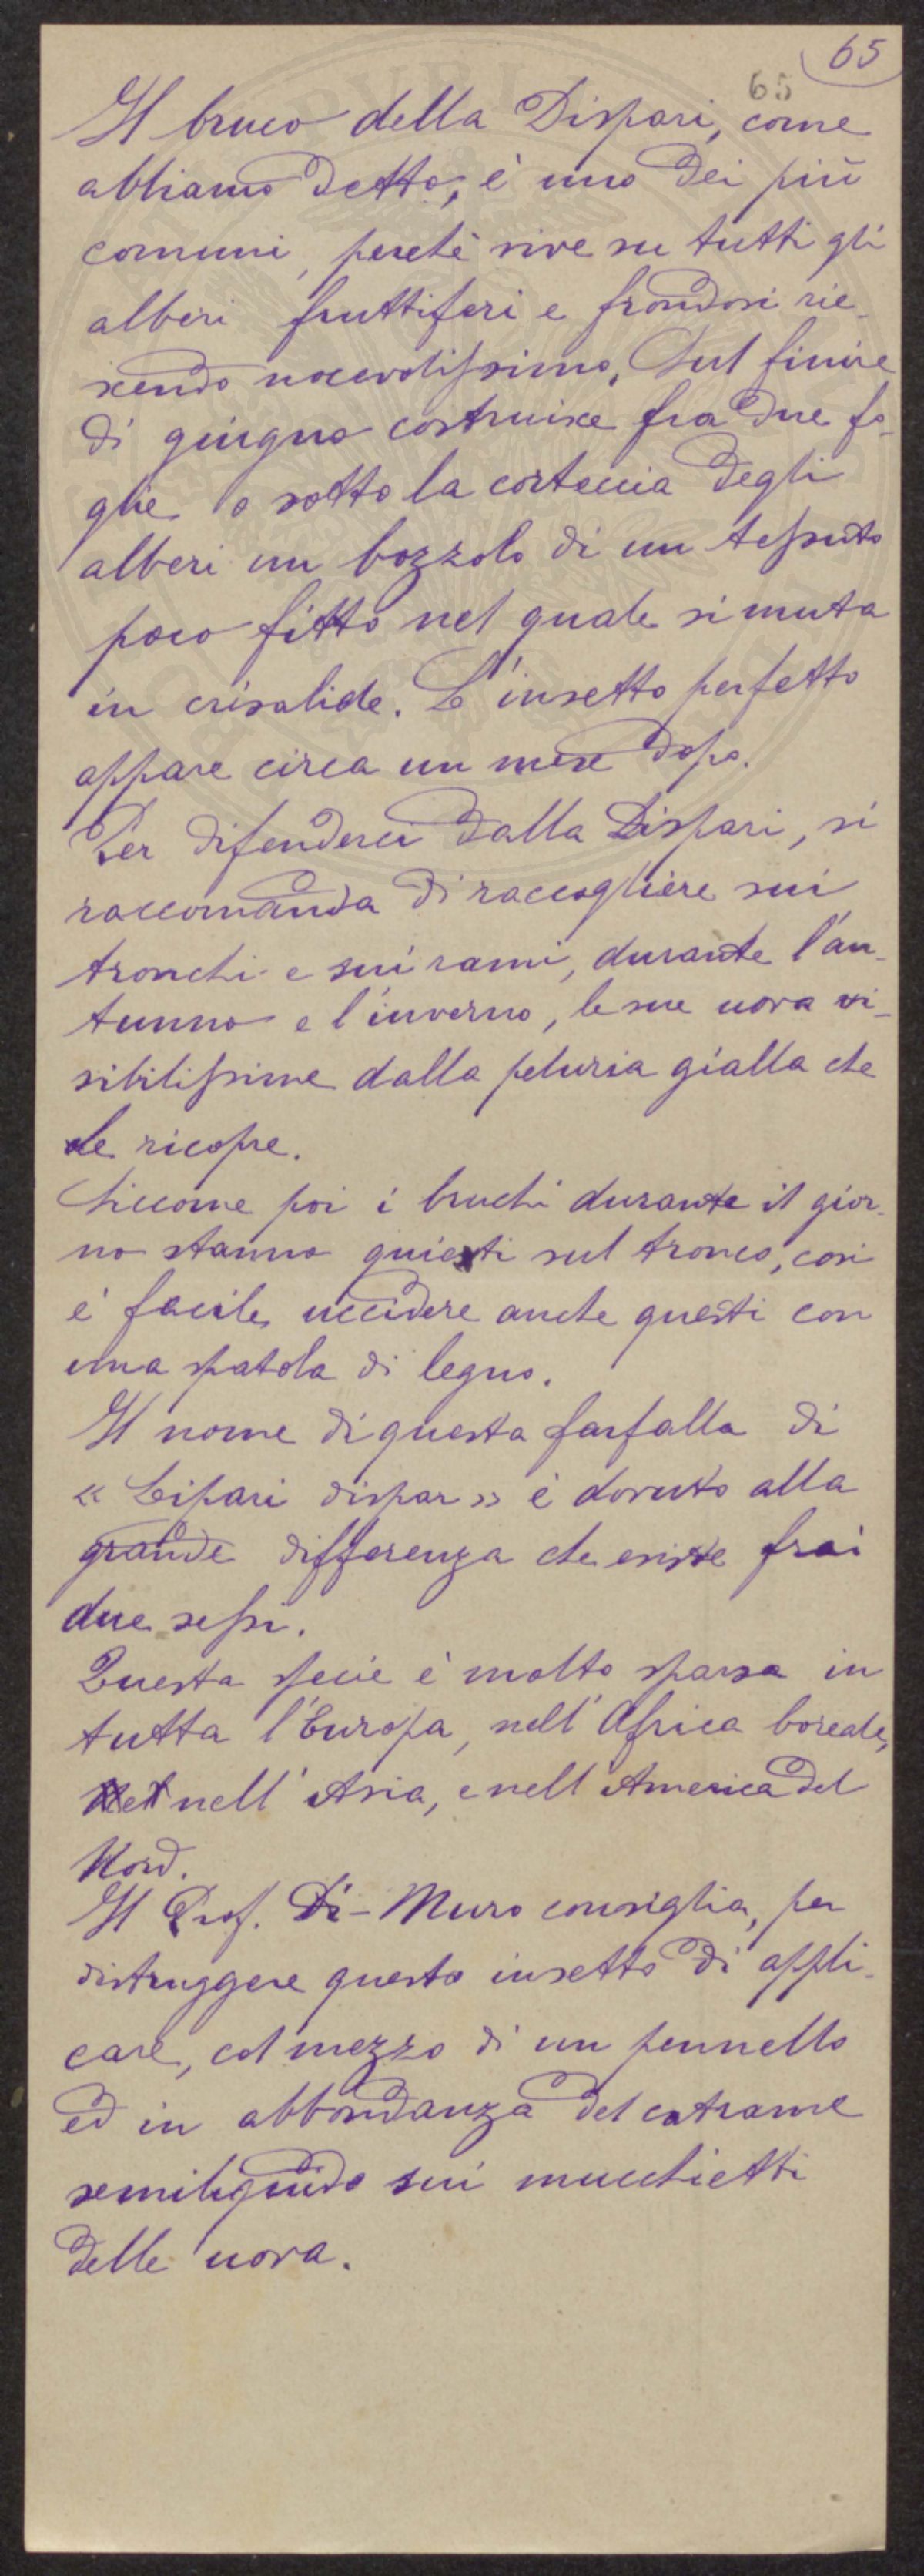 65
65
Il bruco della Dispari, come
abbiamo detto, è uno dei più
comuni, perchè vive su tutti gli
alberi fruttiferi e frondosi rie-
scendo nocevolissimo. Sul finire
di giugno costruisce fra due fo-
glie o sotto la corteccia degli
alberi un bozzolo di un tessuto
poco fitto nel quale si muta
in crisalide. L'insetto perfetto
appare circa un mese dopo.
Per difenderci dalla Dispari, si
raccomanda di raccogliere sui
tronchi e sui rami, durante l'au-
tunno e l'inverno, le sue uova vi-
sibilissime dalla peluria gialla che
le ricopre.
Siccome poi i bruchi durante il gior-
no stanno quieti sul tronco, così
è facile uccidere anche questi con
una spatola di legno.
Il nome di questa farfalla di
« Lipari dispar » è dovuto alla
grande differenza che esiste fra i
due sessi.
Questa specie è molto sparsa in
tutta l'Europa, nell'Africa boreale,
nell'Asia, e nell'America del
Nord.
Il Prof. Di-Muro consiglia, per
distruggere questo insetto di appli-
care, col mezzo di un pennello
ed in abbondanza del catrame
semiliquido sui mucchietti
delle uova.